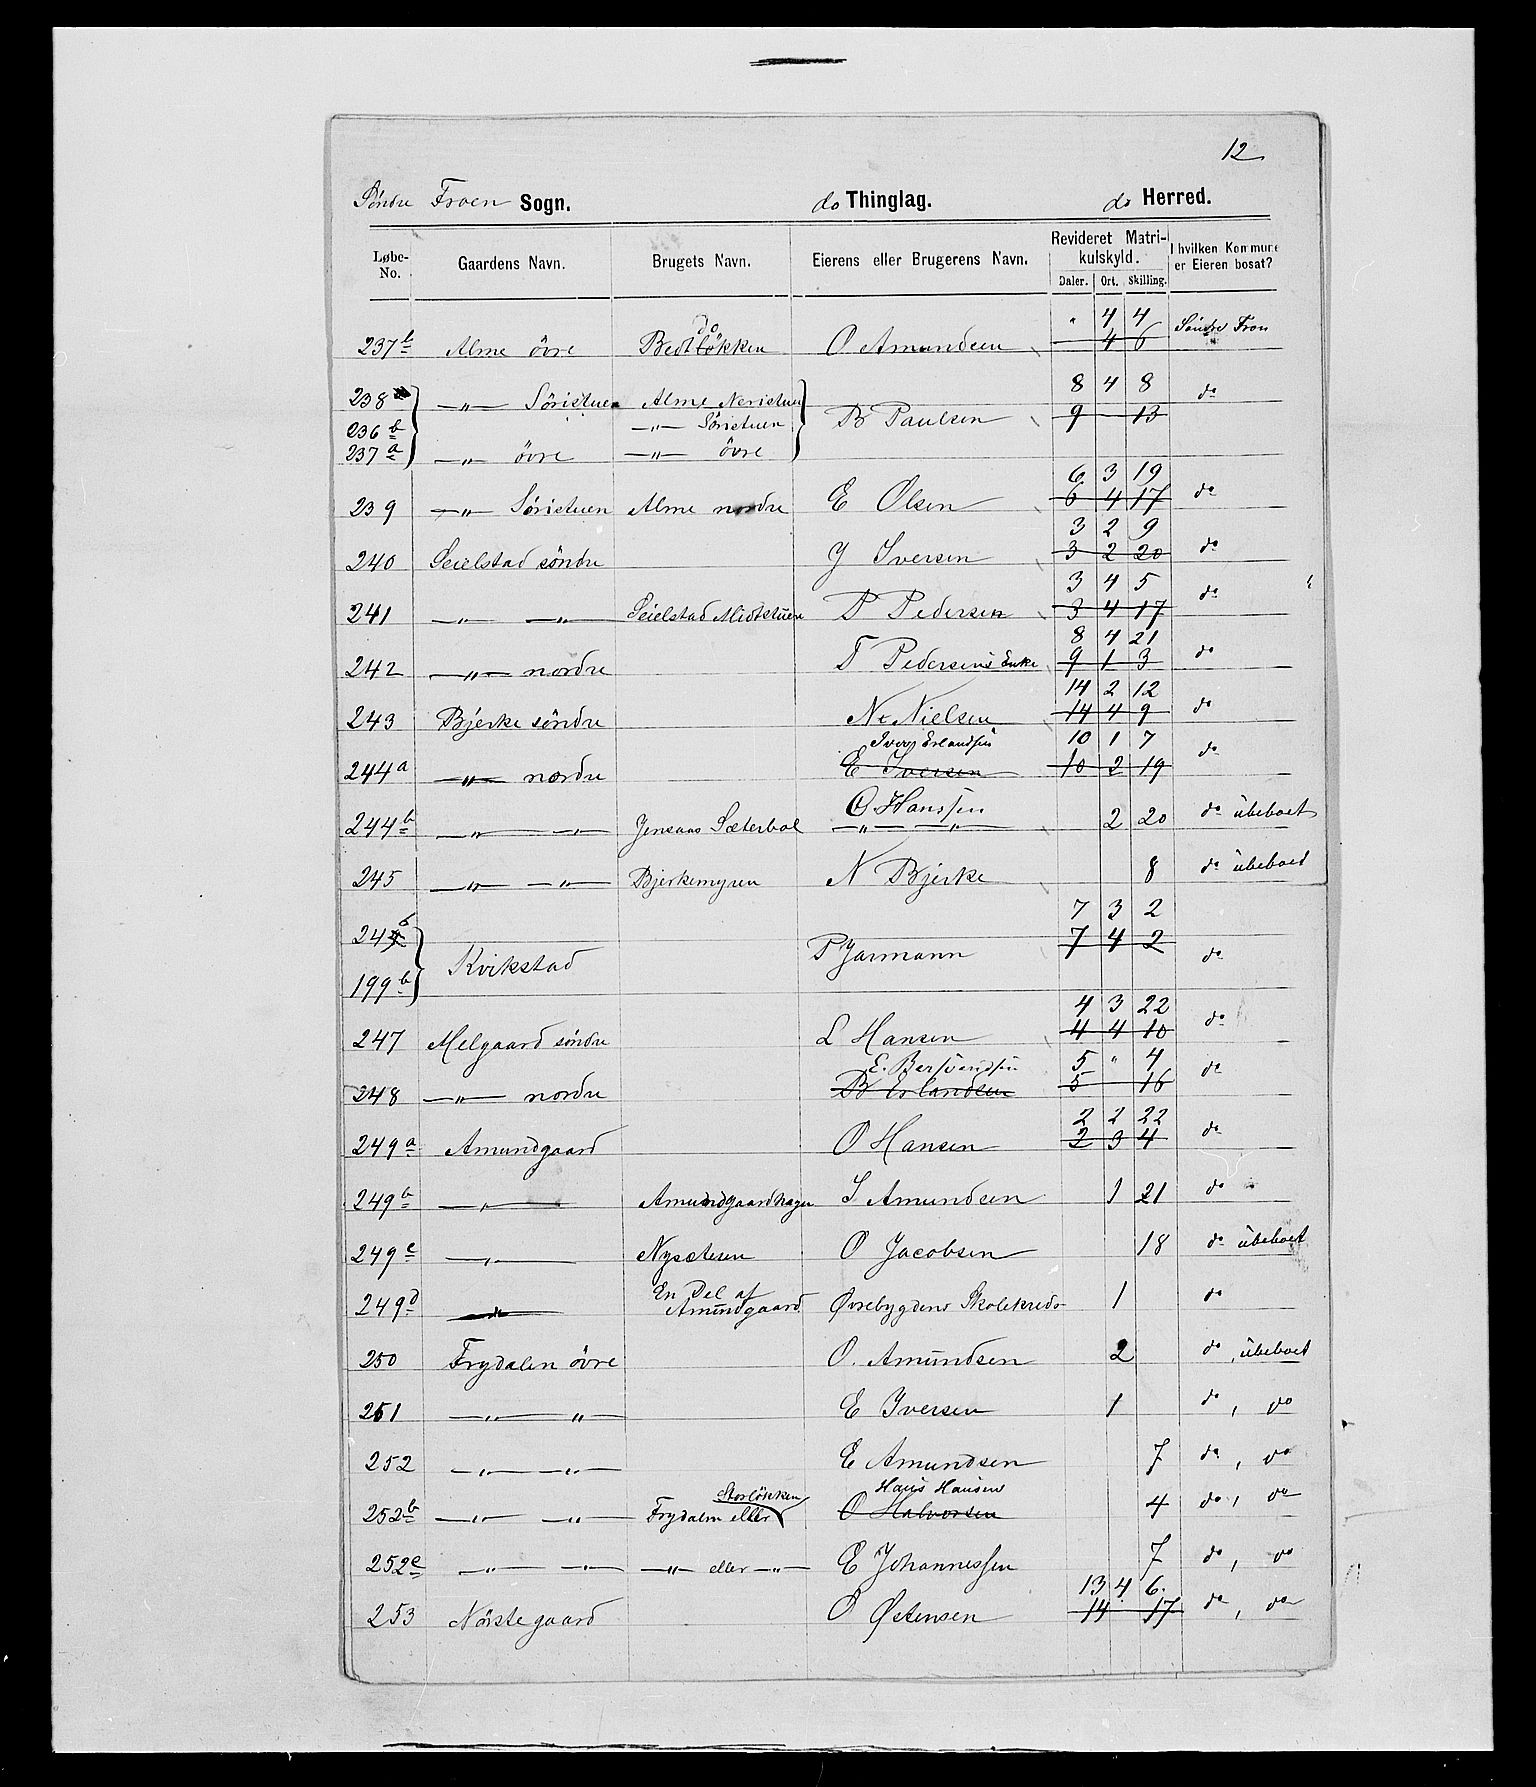 12
Söndre Froen Sogn. do Thinglag. do Herred.
Løbe-No. Gaardens Navn. Brugets Navn. Eierens eller Brugerens Navn. Revideret Matrikulskyld. Daler. Ort. Skilling. I hvilken Kommune er Eieren bosat?
do " 4 4
237b Alme övre Bedtlökken O Amundsen 4 6 Söndre Fron
8 4 8
238 —„— Söristuen Alme Neristuen B Paulsen 9 13 do
236b —„— Söristuen
237a —„— övre —„— övre
6 3 19
239 —„— Söristuen Alme nordre E Olsen 6 4 17 do
3 2 9
240 Seielstad söndre J Iversen 3 2 20 do
3 4 5
241 —„— —„— Seielstad Midtstuen P Pedersen 3 4 17 do
8 4 21
242 —„— nordre T Pedersens Enke 9 1 3 do
14 2 12
243 Bjerke söndre N. Nielsen 14 4 9 do
Iver Erlandsen 10 1 7
244a —„— nordre E Iversen 10 2 19 do
O. Hanssen
244b —„— —„— Jensaas Sæterbol —„— —„— 2 20 do ubeboet
245 —„— —„— Bjerkemyren N Bjerke 8 do ubeboet
7 3 2
244b Kvikstad P Jarmann 7 4 2 do
199b
4 3 22
247 Melgaard söndre L Hansen 4 4 10 do
E. Bersvendsen 5 " 4
248 —„— nordre B Erlandsen 5 16 do
2 2 22
249a Amundgaard O Hansen 2 3 4 do
249b —„— Amundgaardhagen I Amundsen 1 21 do
249c —„— Nysæteren O Jacobsen 18 do ubeboet
249d —„— En Del af Amundgaard Øvrebygdens Skolekreds 1 do
250 Frydalen övre O. Amundsen 2 do, ubeboet
251 —„— „— E Iversen 1 do, do
252 —„— —„— E Amundsen 7 do, do
Storlökken Hans Hansen
252b —„— —„— Frydalen eller O Halvorsen 4 do, do
252c —„— —„— —„— eller —„— E Johannessen 7 do, do
13 4 6
253 Nörstegaard O Østensen 14 17 do, do